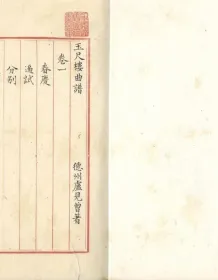 玉尺樓曲譜
德州盧見曾著
卷一
春慶
遄試
分別